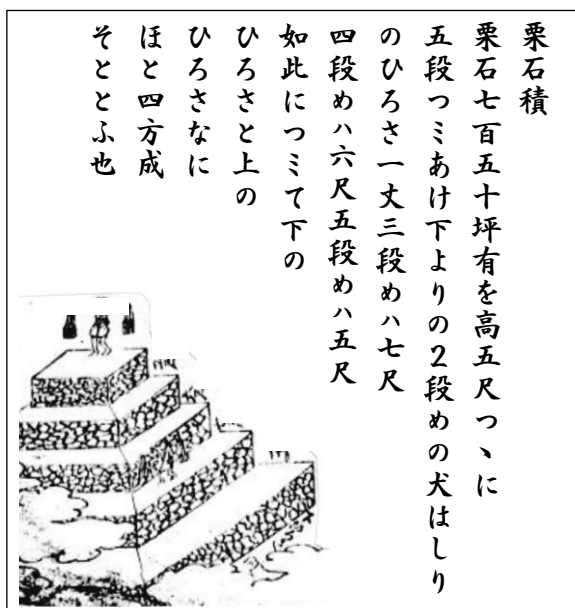 栗石積
栗石七百五十坪有を高五尺つヽに
五段つミあけ下よりの2段めの犬はしり
のひろさ一丈三段めハ七尺
四段めハ六尺五段めハ五尺
如此につミて下の
ひろさと上の
ひろさなに
ほと四方成
そととふ也